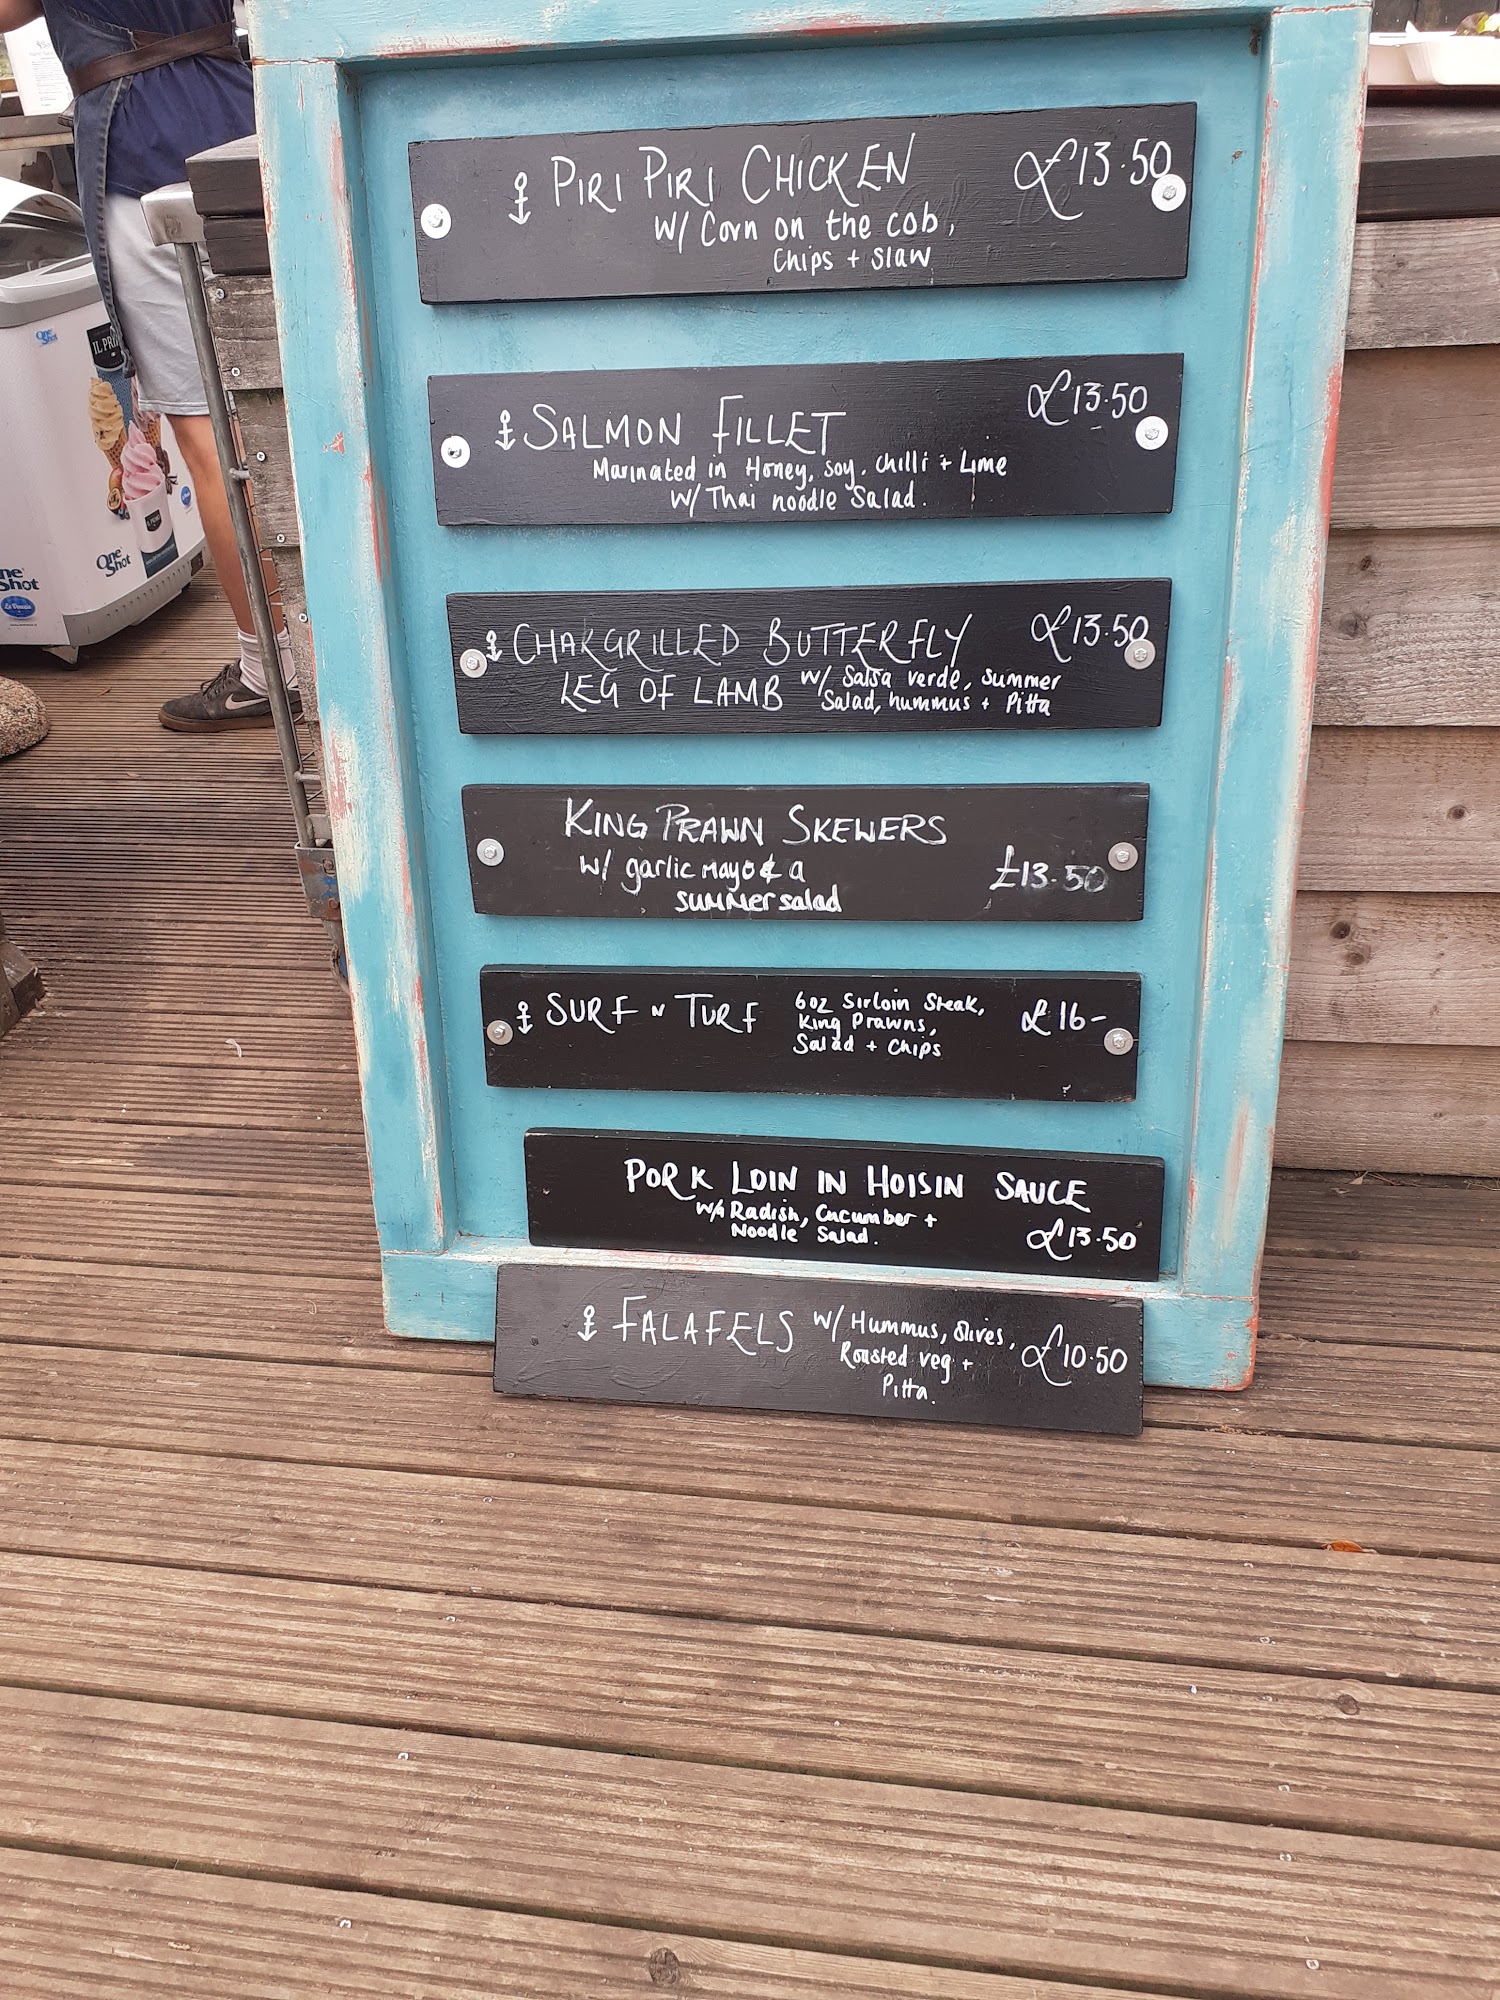 PIRI PIRI CHICKEN £13.50
W/ Corn on the cob,
Chips + Slaw
SALMON FILLET £13.50
Marinated in Honey, soy, chilli + Lime
W/ Thai noodle Salad.
CHARGRILLED BUTTERFLY £13.50
LEG OF LAMB W/ Salsa verde, summer
Salad, hummus + Pitta
KING PRAWN SKEWERS
W/ garlic mayo & a £13.50
summer salad
SURF N TURF 6oz Sirloin Steak, £16-
King Prawns,
Salad + Chips
PORK LOIN IN HOISIN SAUCE
W/ Radish, Cucumber +
Noodle Salad. £13.50
FALAFELS W/ Hummus, Olives, £10.50
Roasted veg +
Pitta.
One Shot
One Shot